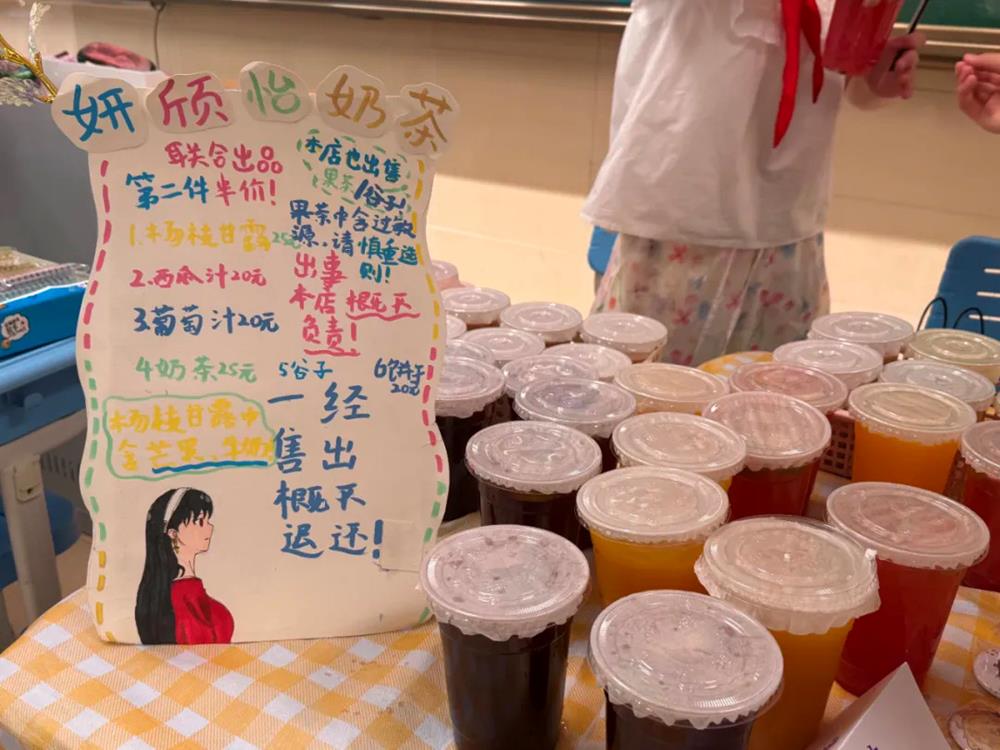 妍颀怡奶茶
联合出品
第二件半价!
1.杨枝甘露25元
2.西瓜汁20元
3.葡萄汁20元
4奶茶25元
本店也出售
果茶/谷子!
果茶中含过敏
源,请慎重选
则!
出事
本店概不
负责!
5谷子
6饼干
20元
杨枝甘露中
含芒果、牛奶
一经
售出
概不
退还!